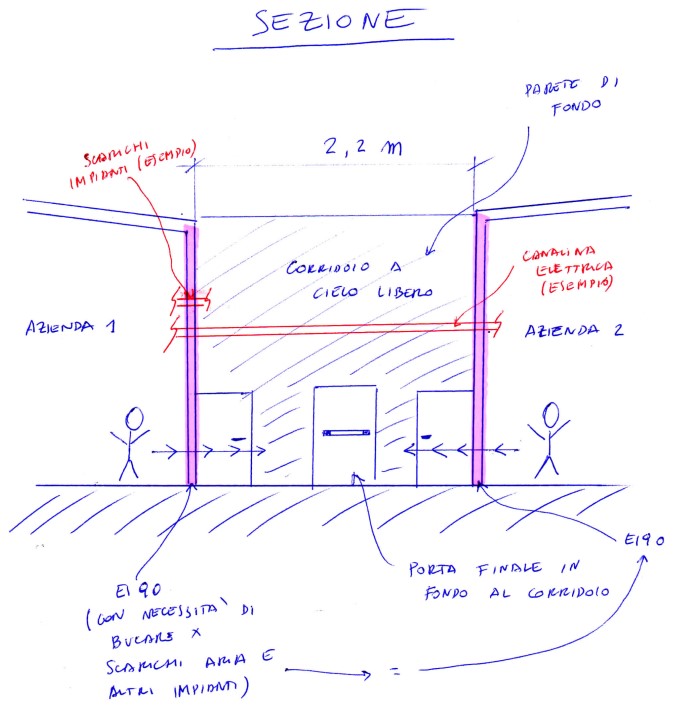 SEZIONE
PARETE DI
FONDO
SCARICHI
IMPIANTI (ESEMPIO)
2,2 m
CORRIDOIO A
CIELO LIBERO
CANALINA
ELETTRICA
(ESEMPIO)
AZIENDA 1
AZIENDA 2
EI90
PORTA FINALE IN
FONDO AL CORRIDOIO
EI 90
(CON NECESSITA' DI
BUCARE X
SCARICHI ARIA E
ALTRI IMPIANTI)
=